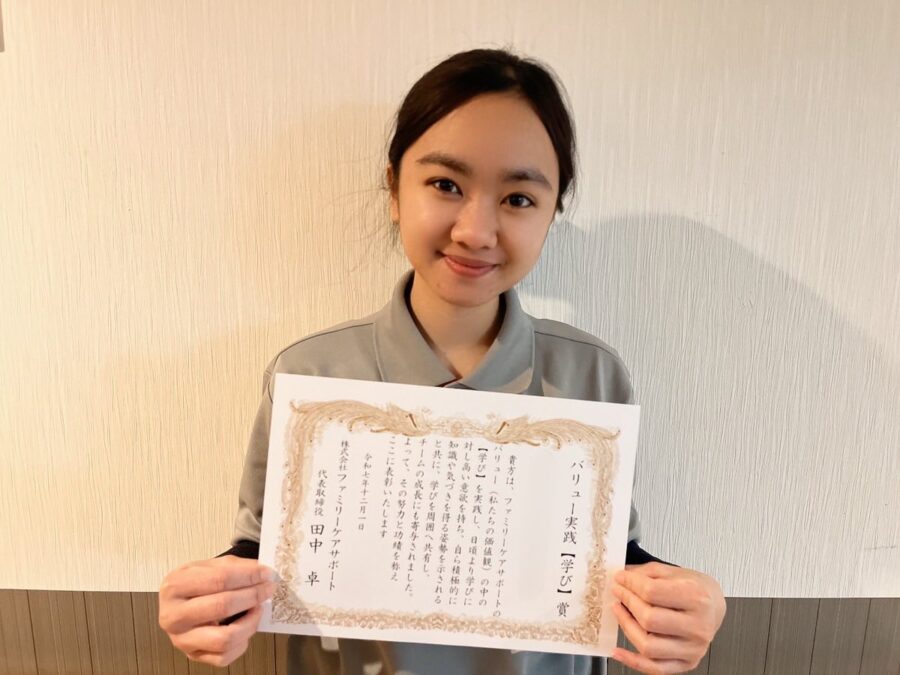 バリュー実践【学び】賞
貴方は、ファミリーケアサポートの
バリュー（私たちの価値観）の中の
【学び】を実践し、日頃より学びに
対し高い意欲を持ち、自ら積極的に
知識や気づきを得る姿勢を示される
と共に、学びを周囲へ共有し、
チームの成長にも寄与されました。
よって、その努力と功績を称え、
ここに表彰いたします
令和七年十二月一日
株式会社ファミリーケアサポート
代表取締役 田中 卓